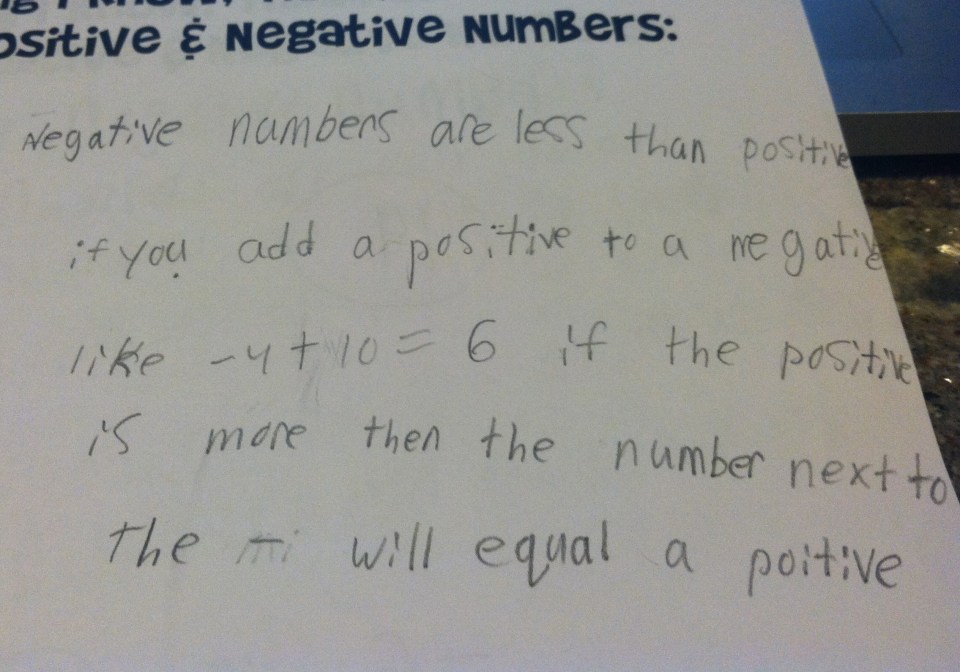 ositive & Negative Numbers:
Negative numbers are less than positive
if you add a positive to a negative
like -4 + 10 = 6 if the positive
is more then the number next to
the will equal a poitive